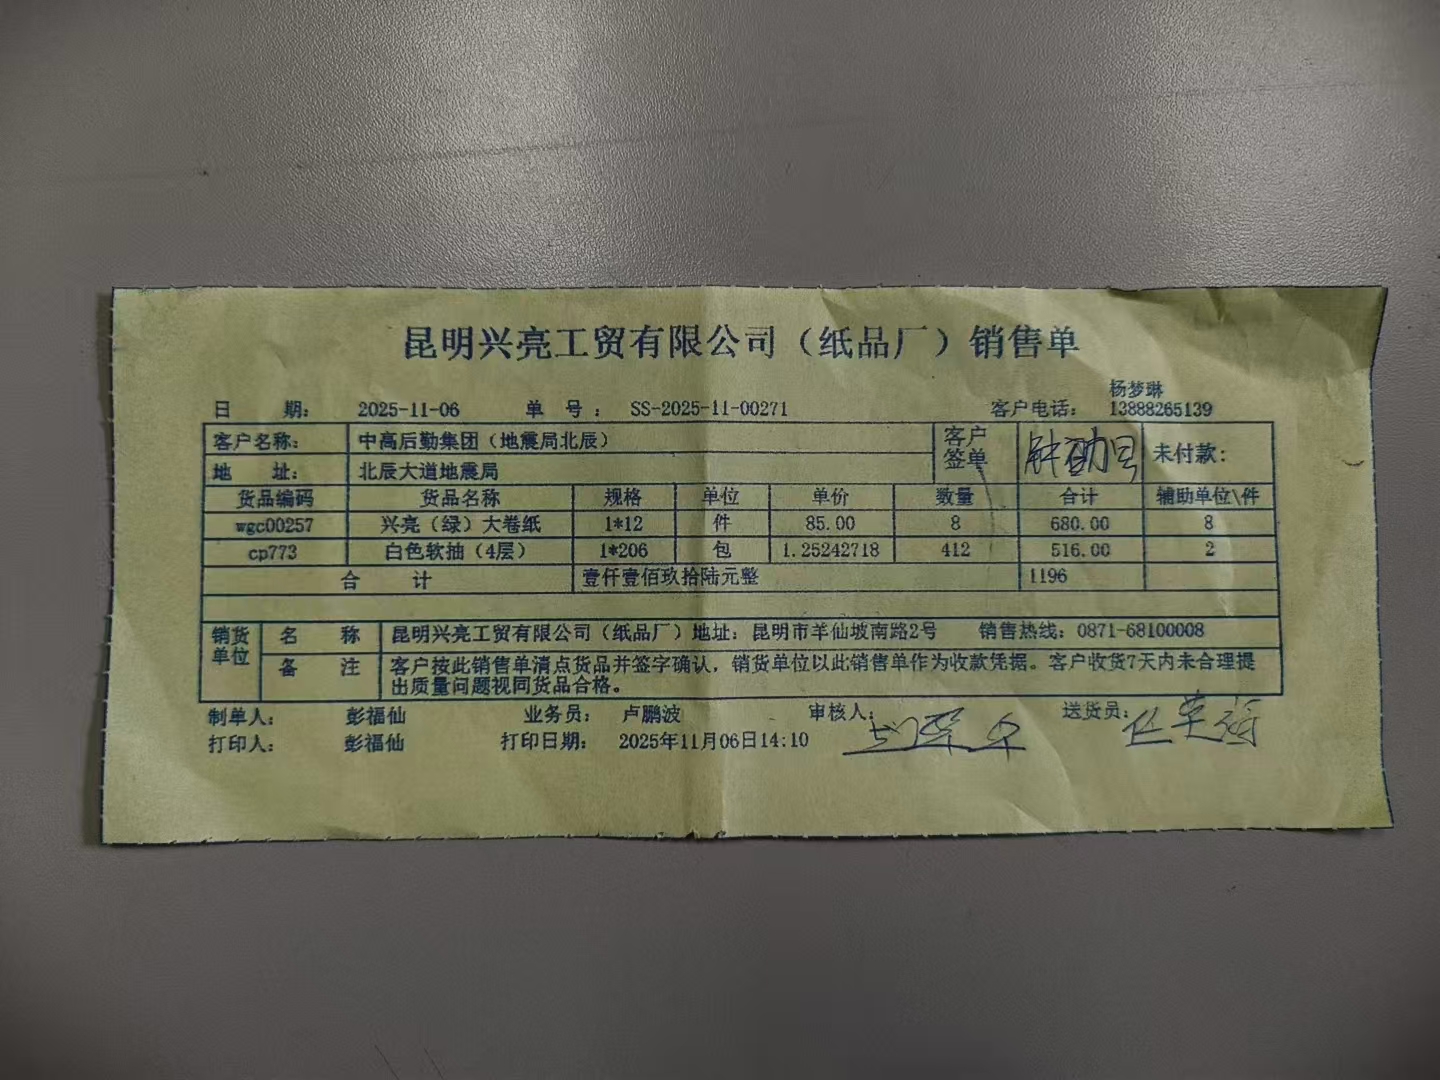 昆明兴亮工贸有限公司（纸品厂）销售单
杨梦琳
日 期： 2025-11-06 单 号： SS-2025-11-00271 客户电话： 13888265139
客户名称： 中高后勤集团（地震局北辰） 客户签单 未付款：
地 址： 北辰大道地震局
货品编码 货品名称 规格 单位 单价 数量 合计 辅助单位\件
wgc00257 兴亮（绿）大卷纸 1*12 件 85.00 8 680.00 8
cp773 白色软抽（4层） 1*206 包 1.25242718 412 516.00 2
合 计 壹仟壹佰玖拾陆元整 1196
销货单位 名 称 昆明兴亮工贸有限公司（纸品厂）地址：昆明市羊仙坡南路2号 销售热线：0871-68100008
备 注 客户按此销售单清点货品并签字确认，销货单位以此销售单作为收款凭据。客户收货7天内未合理提
出质量问题视同货品合格。
制单人： 彭福仙 业务员： 卢鹏波 审核人： 送货员：
打印人： 彭福仙 打印日期： 2025年11月06日14:10